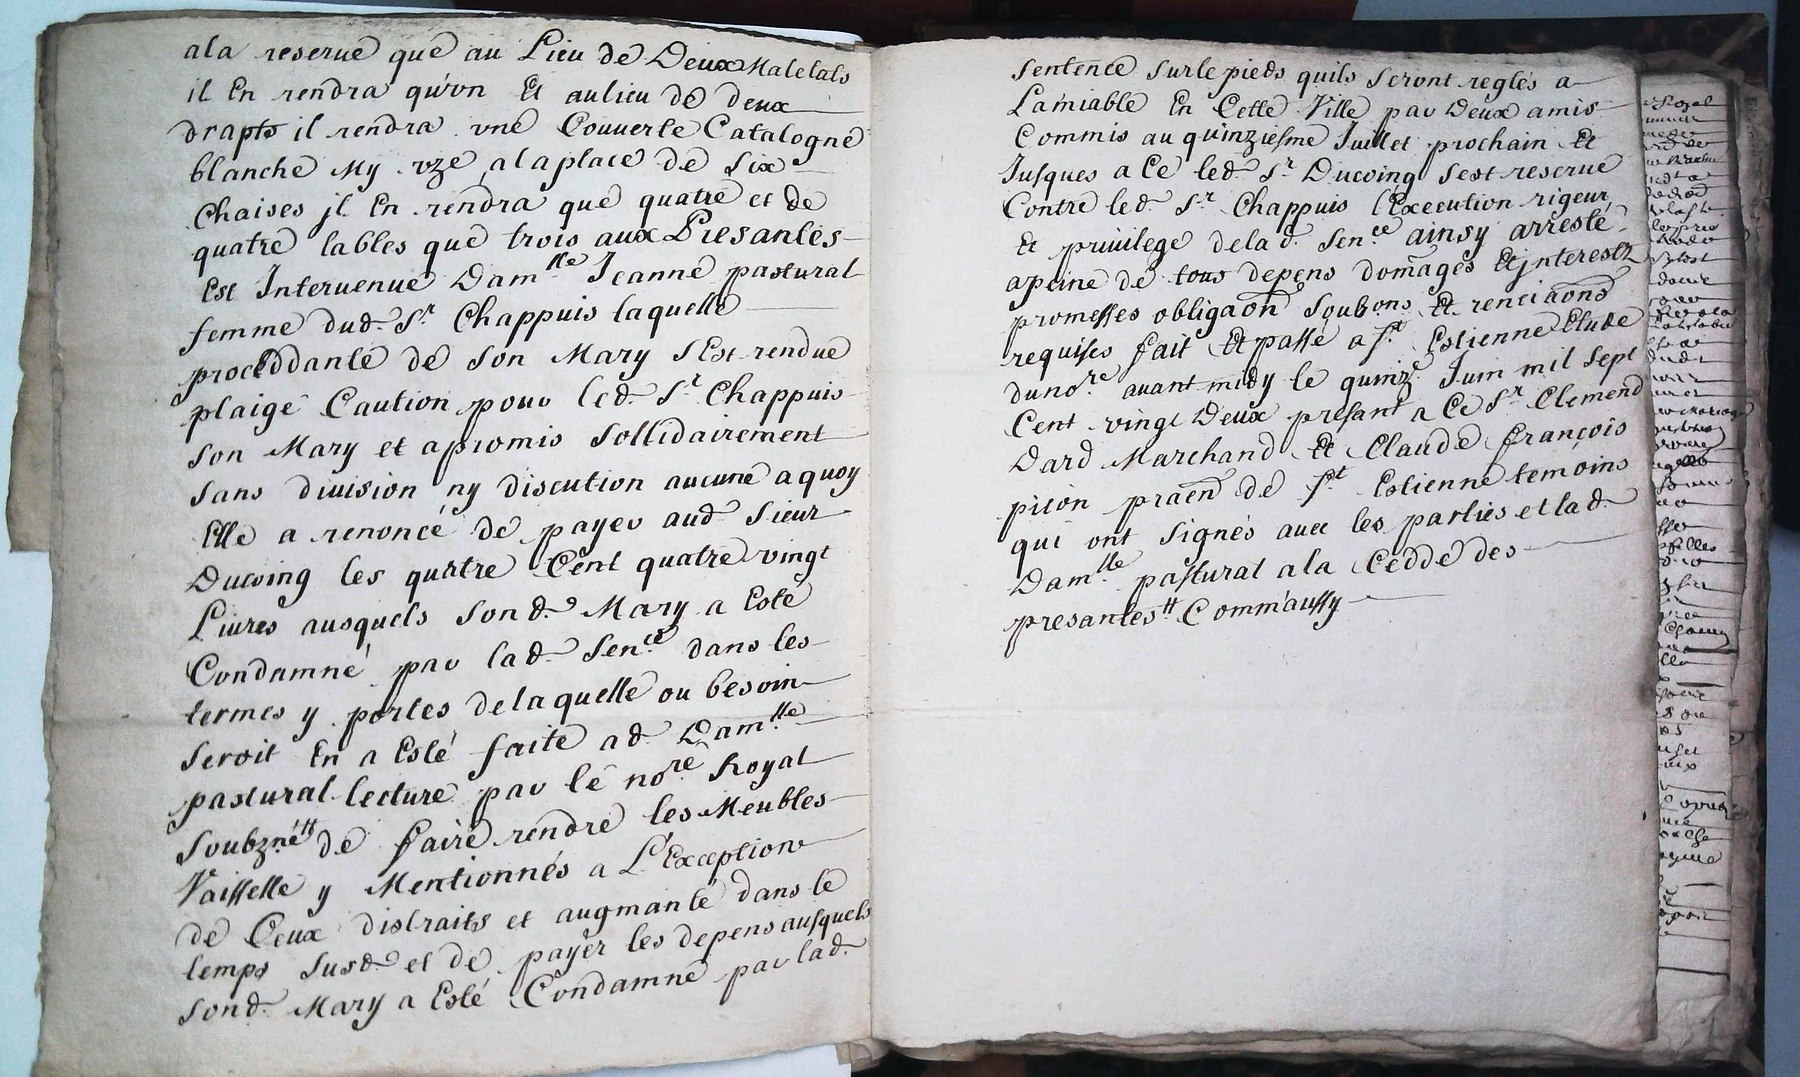 ala reserue que au Lieu de Deux Matelats
il En rendra qu'vn Et aulieu de deux
drapts il rendra vne Couuerte Catalogne
blanche My vzé, alaplace de Six
Chaises jl En rendra que quatre et de
quatre tables que trois aux Presantes
Est Interuenue Dam.lle Jeanne pastural
femme dud. Sr Chappuis laquelle
proceddante de son Mary s'Est rendue
plaige Caution pour led. Sr Chappuis
son Mary et apromis sollidairement
sans diuision ny discution aucune aquoy
Elle a renoncé de payer aud. Sieur
Ducoing les quattre Cent quatre vingt
Liures ausquels son d. Mary a Esté
Condamné par lad. Sen.ce dans les
termes y portés delaquelle ou besoin
seroit En a Esté faite ad. Dam.lle
pastural lecture par le no.re Royal
soubzné.tt de faire rendre les Meubles
Vaisselle y Mentionnés a L'Exception
de Ceux distraits et augmanté dans le
temps susd. et de payer les depens ausquels
sond. Mary a Esté Condamné par lad.
sentence surle pieds quils seront reglés a
Lamiable En Cette Ville par Deux amis
Commis au quinziesme Juillet prochain Et
Jusques a Ce led. Sr Ducoing sest reserue
Contre led. Sr Chappuis l'Execution rigeur
Et priuilege delad. Sen.ce ainsy arresté
apeine de tous depens domages Et jnterests
promesses obligaōn soubons Et renciaōns
requises fait Et passé a St Estienne Etude
duno.re auant midy le quinze Juin mil sept
Cent vingt Deux presant a Ce Sr Clemend
Dard Marchand Et Claude françois
picon praēn de St Estienne temoins
qui ont signés auec les parties et lad.
Dam.lle pastural ala Cedde des
presantes.tt Comm'aussy